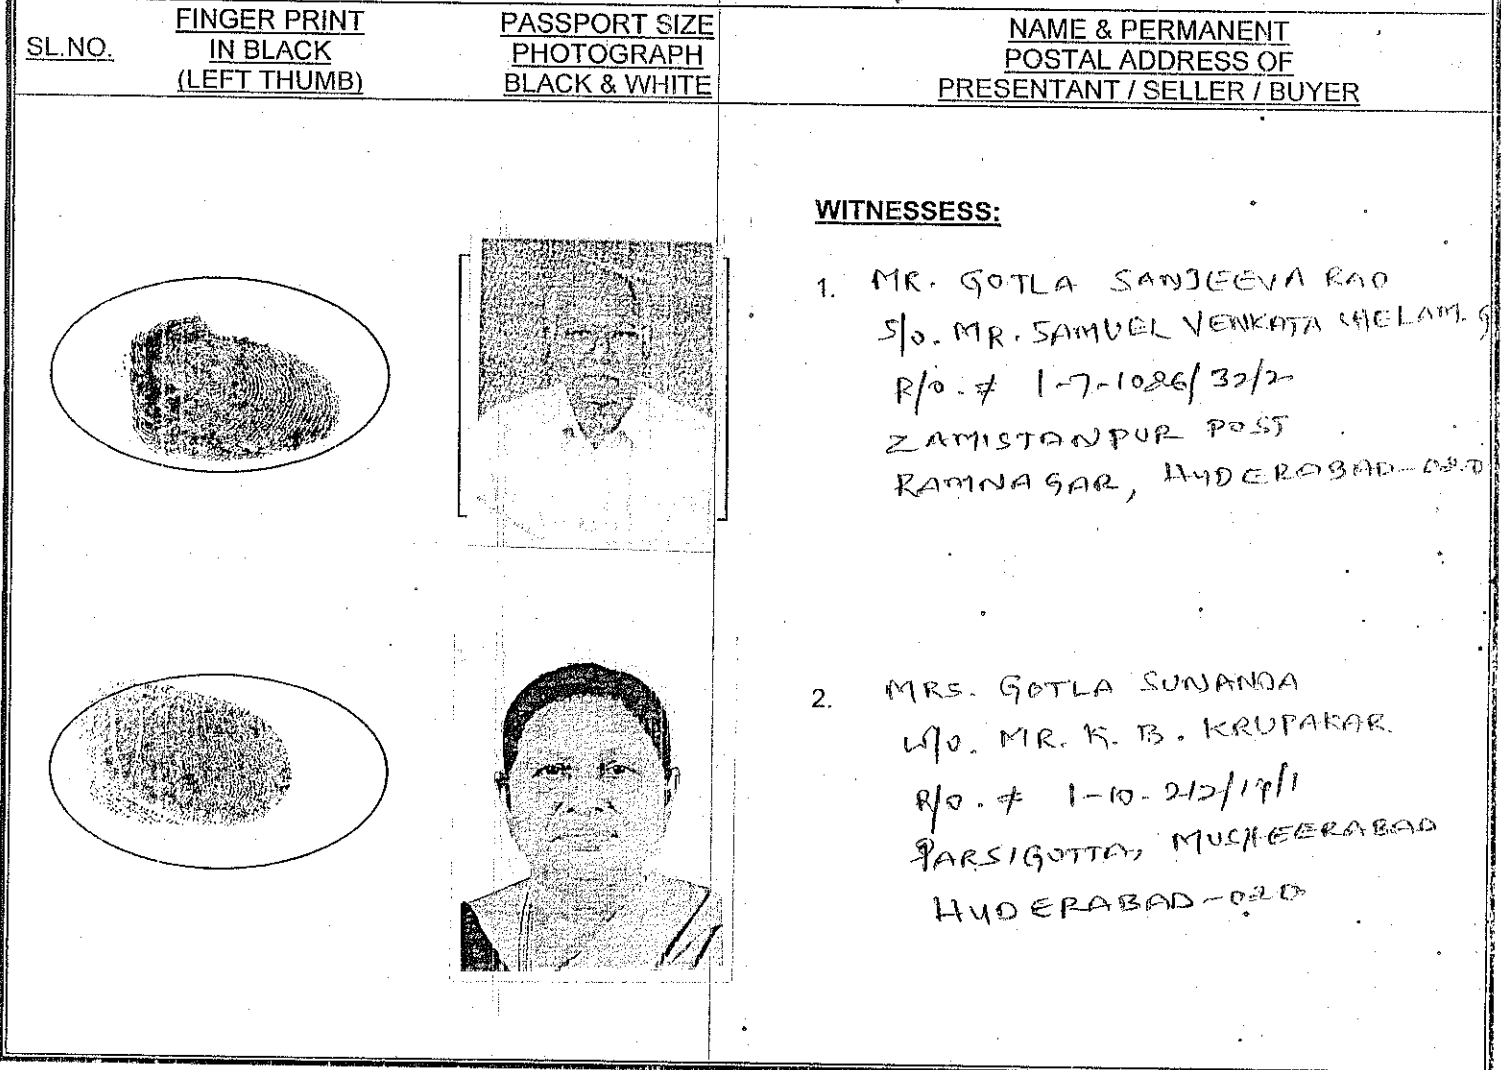 SL.NO.
FINGER PRINT
IN BLACK
(LEFT THUMB)
PASSPORT SIZE
PHOTOGRAPH
BLACK & WHITE
NAME & PERMANENT
POSTAL ADDRESS OF
PRESENTANT / SELLER / BUYER
WITNESSESS:
1. MR. GOTLA SANJEEVA RAO
S/o. MR. SAMUEL VENKATA CHELAM. G
R/o. # 1-7-1086/32/2
ZAMISTANPUR POST
RAMNAGAR, HYDERABAD-020
2. MRS. GOTLA SUNANDA
W/o. MR. K. B. KRUPAKAR.
R/o. # 1-10-212/19/1
PARSIGUTTA, MUSHEERABAD
HYDERABAD-020